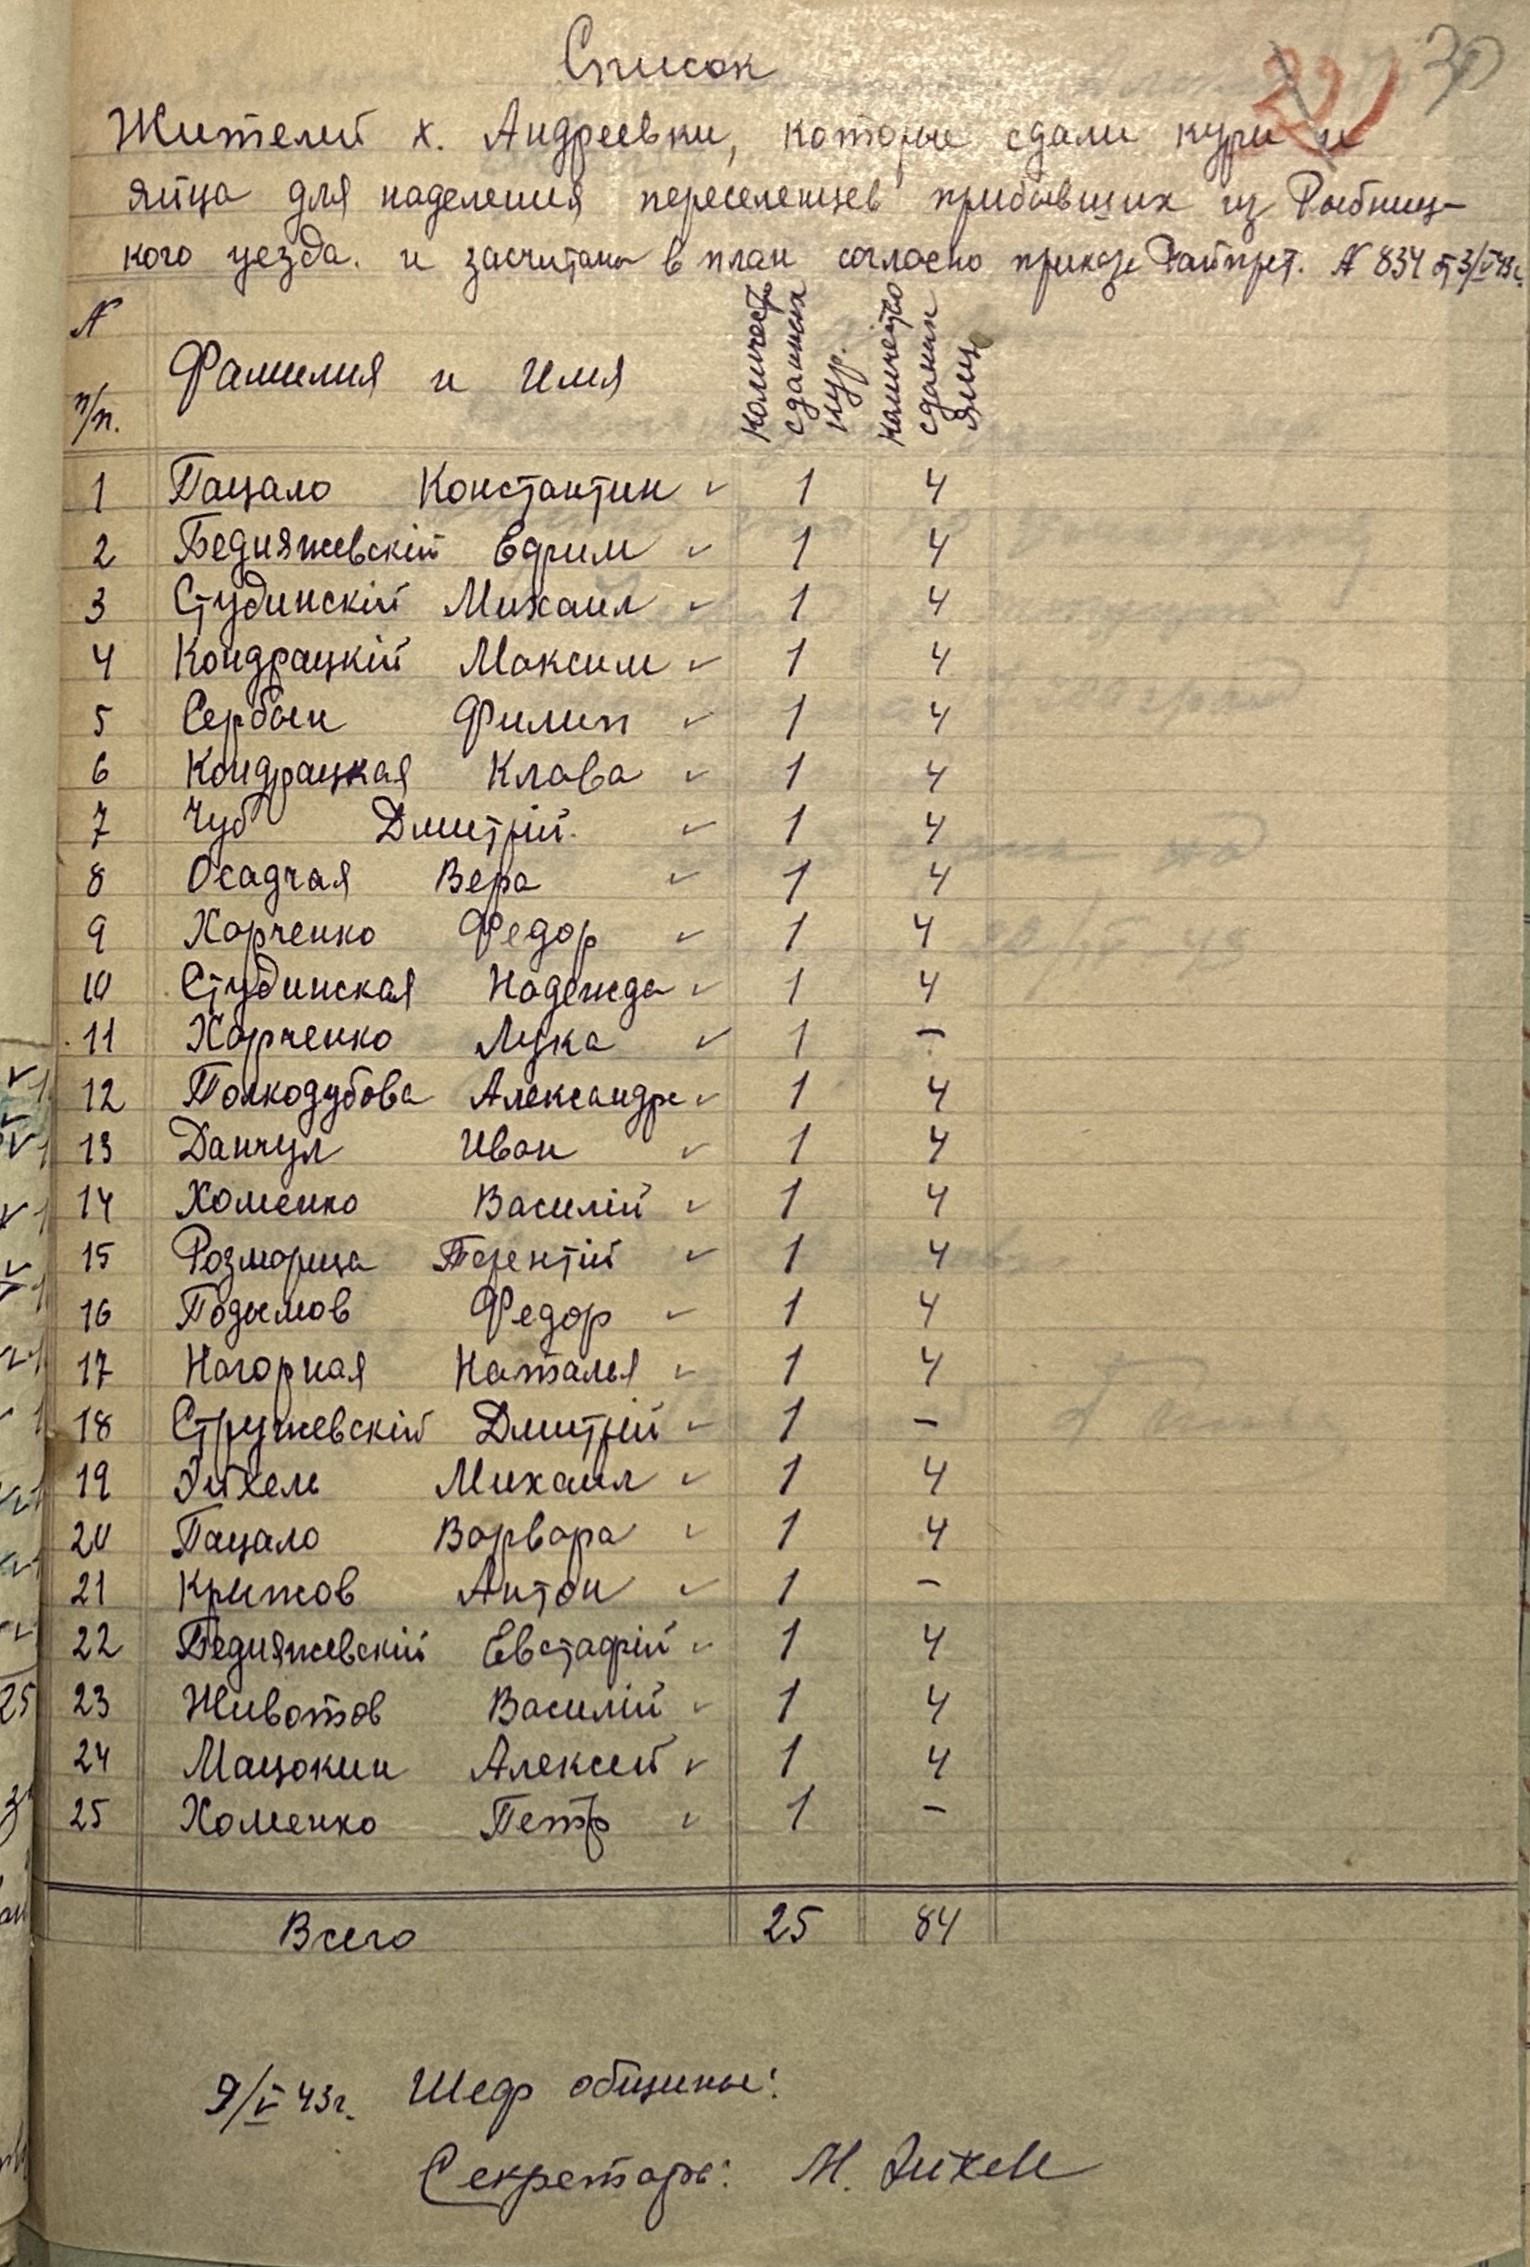 30
22
Список
Жителей х. Андреевки, которые сдали кури и
яйца для наделения переселенцев прибывших из Рыбниц-
кого уезда. и засчитаны в план согласно приказа Райпрет. № 834 от 3/V 43 г.
№ п/п. Фамилия и Имя Количеств сданных кур. Количество сданых яиц
1 Пацало Константин ✓ 1 4
2 Бедняжевскій Ефрим ✓ 1 4
3 Студинскій Михаил ✓ 1 4
4 Кондрацкій Максим ✓ 1 4
5 Сербын Филип ✓ 1 4
6 Кондрацкая Клава ✓ 1 4
7 Чуб Дмитрій. ✓ 1 4
8 Осадчая Вера ✓ 1 4
9 Харченко Федор ✓ 1 4
10 Студинская Надежда ✓ 1 4
11 Харченко Лука ✓ 1 –
12 Толкодубова Александра ✓ 1 4
13 Данчул Иван ✓ 1 4
14 Хоменко Василій ✓ 1 4
15 Розморица Терентій ✓ 1 4
16 Подымов Федор ✓ 1 4
17 Нагорная Наталья ✓ 1 4
18 Стружевскій Дмитрій ✓ 1 –
19 Эйхель Михаил ✓ 1 4
20 Пацало Варвара ✓ 1 4
21 Крыжов Антон ✓ 1 –
22 Бедняжевскій Евстафій ✓ 1 4
23 Животов Василій ✓ 1 4
24 Мацокин Алексей ✓ 1 4
25 Хоменко Петр ✓ 1 –
Всего 25 84
9/V 43 г. Шеф общины:
Секретарь: М. Эйхель